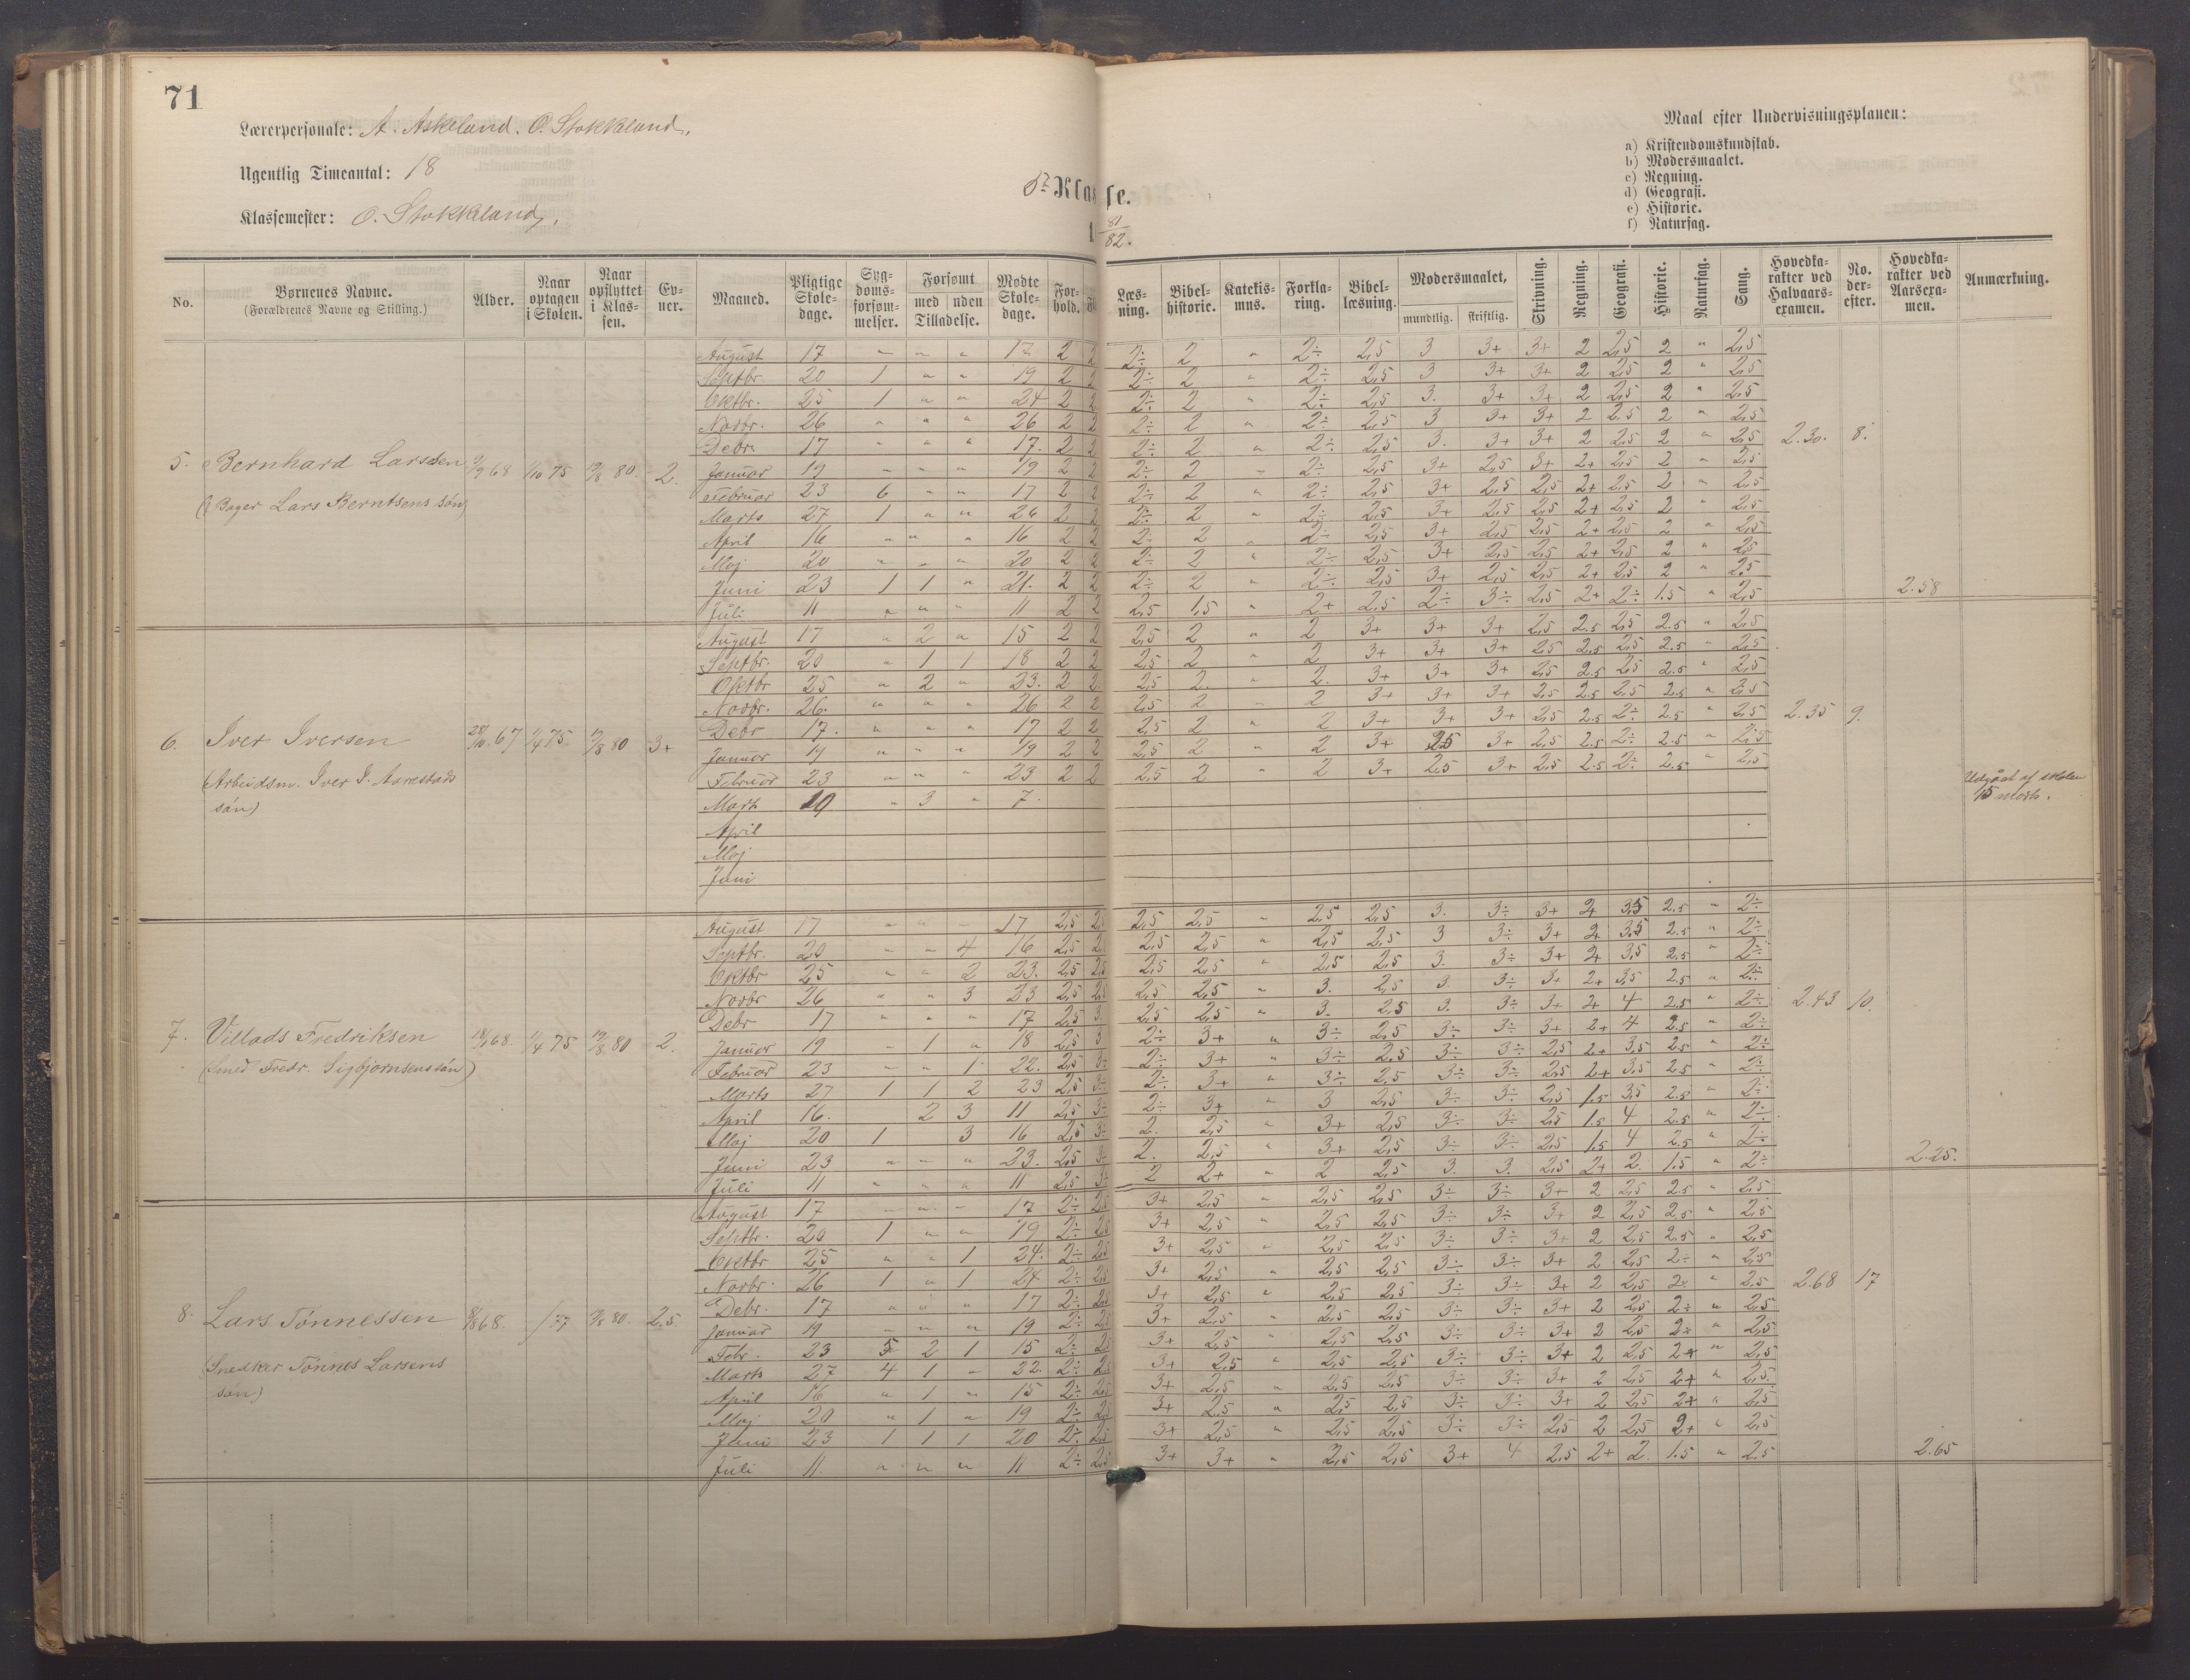 71
Lærerpersonale: A. Askeland. O. Stokkeland.
Ugentlig Timeantal: 18
Klassemester: O. Stokkeland.
Klasse.
81/82.
Maal efter Undervisningsplanen:
a) Kristendomskundskab.
b) Modersmaalet.
c) Regning.
d) Geografi.
e) Historie.
f) Naturfag.
No. Børnenes Navne. (Forældrenes Navne og Stilling.) Alder. Naar optagen i Skolen. Naar opflyttet i Klassen. Evner. Maaned. Pligtige Skoledage. Sygdomsforsømmelser. Forsømt med uden Tilladelse. Mødte Skoledage. Forhold. Læsning. Bibelhistorie. Katekismus. Forklaring. Bibellæsning. Modersmaalet, mundtlig. skriftlig. Skrivning. Regning. Geografi. Historie. Naturfag. Sang. Hovedkarakter ved Halvaarsexamen. No. derefter. Hovedkarakter ved Aarsexamen. Anmærkning.
August 17 " " " 17 2 2 2÷ 2 " 2÷ 2,5 3 3+ 3+ 2 2,5 2 " 2,5
Septbr 20 1 " " 19 2 2 2÷ 2 " 2÷ 2,5 3 3+ 3+ 2 2,5 2 " 2,5
Oktbr. 25 1 " " 24 2 2 2÷ 2 " 2÷ 2,5 3. 3+ 3+ 2 2,5 2 " 2,5
Novbr. 26 " " " 26 2 2 2÷ 2 " 2÷ 2,5 3 3+ 3+ 2 2,5 2 " 2,5
Debr. 17 " " " 17. 2 2 2÷ 2 " 2÷ 2,5 3. 3+ 3+ 2 2,5 2 " 2,5 2.30. 8.
5. Bernhard Larsen 68 1/10 75 80. 2. Januar 19 " " " 19 2 2 2÷ 2 " 2÷ 2,5 3+ 2,5 3+ 2+ 2,5 2 " 2,5
(Bager Lars Berntsens søn) Februar 23 6 " " 17 2 2 2÷ 2 " 2÷ 2,5 3+ 2,5 2,5 2+ 2,5 2 " 2,5
Marts 27 1 " " 26 2 2 2÷ 2 " 2÷ 2,5 3+ 2,5 2,5 2+ 2,5 2 " 2,5
April 16 " " " 16 2 2 2÷ 2 " 2÷ 2,5 3+ 2,5 2,5 2+ 2,5 2 " 2,5
Maj 20 " " " 20 2 2 2÷ 2 " 2÷ 2,5 3+ 2,5 2,5 2+ 2,5 2 " 2,5
Juni 23 1 1 " 21. 2 2 2÷ 2 " 2÷ 2,5 3+ 2,5 2,5 2+ 2,5 2 " 2,5
Juli 11 " " " 11 2 2 2,5 1,5 " 2+ 2,5 2÷ 3÷ 2,5 2+ 2÷ 1.5 " 2,5 2.58
August 17 " 2 " 15 2 2 2,5 2 " 2 3+ 3+ 3+ 2,5 2.5 2,5 2.5 " 2,5
Septbr. 20 " 1 1 18 2 2 2,5 2 " 2 3+ 3+ 3+ 2,5 2.5 2,5 2.5 " 2,5
Oktbr 25 " 2 " 23. 2 2 2,5 2 " 2. 3+ 3+ 3+ 2,5 2.5 2,5 2.5 " 2,5
Novbr. 26. " " " 26 2 2 2,5 2 " 2 3+ 3+ 3+ 2,5 2.5 2,5 2.5 " 2,5
Debr 17. " " " 17 2 2 2,5 2 " 2 3+ 3+ 3+ 2,5 2.5 2÷ 2.5 " 2,5 2.35 9.
6. Iver Iversen 28/10 67 1/4 75 80 3+ Januar 19 " " " 19 2 2 2,5 2 " 2 3+ 2,5 3+ 2,5 2.5 2÷ 2.5 " 2,5
(Arbeidsm. Iver I. Aarrestads Februar 23 " " " 23 2 2 2,5 2 " 2 3+ 2,5 3+ 2,5 2.5 2÷ 2.5 " 2,5
søn) Marts 10 " 3 " 7. Udgået af skolen
15 marts.
April
Maj
Juni
August 17 " " " 17 2,5 2,5 2,5 2,5 " 2,5 2,5 3. 3÷ 3+ 2+ 3,5 2.5 " 2÷
Septbr. 20 " " 4 16 2,5 2,5 2,5 2,5 " 2,5 2,5 3 3÷ 3+ 2+ 3,5 2.5 " 2÷
Oktbr 25 " " 2 23. 2,5 2,5 2,5 2,5 " 2,5 2,5 3. 3÷ 3+ 2+ 3,5 2,5 " 2÷
Novbr 26 " " 3 23 2,5 2,5 2,5 2,5 " 3. 2,5 3. 3÷ 3+ 2+ 3,5 2.5 " 2÷
Debr 17 " " " 17 2,5 3. 2,5 2,5 " 3. 2,5 3. 3÷ 3+ 2+ 4 2.5 " 2÷ 2.43 10.
7. Villads Fredriksen 68. 1/4 75 80 2. Januar 19 " 1 " 18 2,5 3 2÷ 3+ " 3÷ 2,5 3÷ 3÷ 3+ 2+ 4 2.5 " 2÷
(Smed Fredr. Sigbjørnsens søn) Februar 23 " " 1 22. 2,5 3÷ 2÷ 3+ " 3÷ 2,5 3÷ 3÷ 2,5 2+ 3,5 2.5 " 2÷
Marts 27 1 1 2 23 2,5 3÷ 2÷ 3+ " 3÷ 2,5 3÷ 3÷ 2,5 2+ 3,5 2.5 " 2÷
April 16. 2 3 11 2,5 3÷ 2÷ 3+ " 3 2,5 3÷ 3÷ 2,5 1.5 3,5 2.5 " 2÷
Maj 20 1 3 16 2,5 3÷ 2. 2,5 " 3+ 2,5 3÷ 3÷ 2,5 1.5 4 2.5 " 2÷
Juni 23 " " " 23. 2,5 3÷ 2. 2,5 " 3+ 2,5 3÷ 3÷ 2,5 1.5 4 2.5 " 2÷
Juli 11 " " " 11 2,5 3÷ 2 2+ " 2 2,5 3. 3. 2,5 2+ 2. 1.5 " 2÷ 2.25.
August 17 " " " 17 2÷ 2,5 3+ 2,5 " 2,5 2,5 3÷ 3÷ 3+ 2 2,5 2.5 " 2,5
Septbr. 20 1 " " 19 2÷ 2,5 3+ 2,5 " 2,5 2,5 3÷ 3÷ 3+ 2 2,5 2,5 " 2,5
Oktbr 25 " " 1 24. 2÷ 2,5 3+ 2,5 " 2,5 2,5 3÷ 3÷ 3+ 2 2,5 2.5 " 2,5
Novbr. 26 1 " 1 24 2÷ 2,5 3+ 2,5 " 2,5 2,5 3÷ 3÷ 3+ 2 2,5 2÷ " 2,5
Debr. 17 " " " 17 2÷ 2,5 3+ 2,5 " 2,5 2,5 3÷ 3÷ 3+ 2 2,5 2÷ " 2,5 2.68 17
8. Lars Tønnessen 68. 77 80. 2,5. Januar 19 " " " 19 2÷ 2,5 3+ 2,5 " 2,5 2,5 3÷ 3÷ 3+ 2 2,5 2÷ " 2,5
Febr. 23 5 2 1 15 2÷ 2,5 3+ 2,5 " 2,5 2,5 3÷ 3÷ 3+ 2 2,5 2÷ " 2,5
(Snedker Tønnes Larsens Marts 27 4 1 " 22. 2÷ 2,5 3+ 2,5 " 2,5 2,5 3÷ 3÷ 3+ 2 2,5 2+ " 2,5
søn) April 16 " 1 " 15 2÷ 2,5 3+ 2,5 " 2,5 2,5 3÷ 3÷ 3+ 2 2,5 2+ " 2,5
Maj 20 " 1 " 19 2÷ 2,5 3+ 2,5 " 2,5 2,5 3÷ 3÷ 3+ 2 2,5 2+ " 2,5
Juni 23 1 1 1 20 2÷ 2,5 3+ 2,5 " 2,5 2,5 3÷ 3÷ 2,5 2 2,5 2+ " 2,5
Juli 11. " " " 11 2÷ 2,5 3+ 3+ " 2,5 2,5 3+ 4 2,5 2+ 2. 1.5 " 2,5 2.65